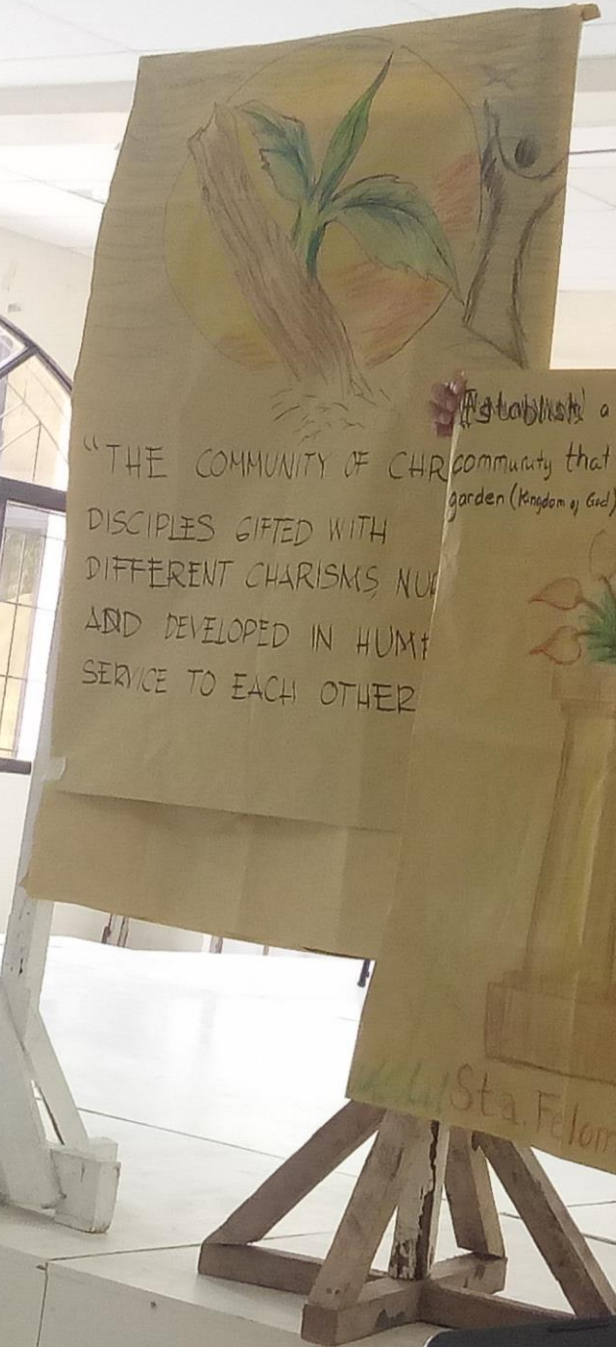 "THE COMMUNITY OF CHR
DISCIPLES GIFTED WITH
DIFFERENT CHARISMS, NU
AND DEVELOPED IN HUM
SERVICE TO EACH OTHER
Establish a
community that
garden (Kingdom of God)
Sta. Felom